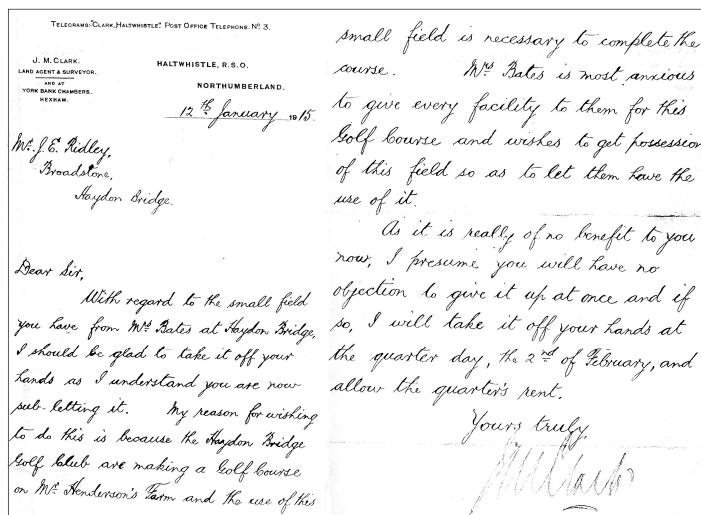 TELEGRAMS: "CLARK, HALTWHISTLE." POST OFFICE TELEPHONE. No 3.
J. M. CLARK.
LAND AGENT & SURVEYOR.
AND AT
YORK BANK CHAMBERS.
HEXHAM.
HALTWHISTLE, R.S.O.
NORTHUMBERLAND.
12th January 1915.
Mr. J. E. Ridley,
Broadstone,
Haydon Bridge.
Dear Sir,
With regard to the small field
you have from Mrs Bates at Haydon Bridge,
I should be glad to take it off your
hands as I understand you are now
sub-letting it. My reason for wishing
to do this is because the Haydon Bridge
Golf Club are making a Golf Course
on Mr. Henderson's Farm and the use of this
small field is necessary to complete the
course. Mrs Bates is most anxious
to give every facility to them for this
Golf Course and wishes to get possession
of this field so as to let them have the
use of it.
As it is really of no benefit to you
now, I presume you will have no
objection to give it up at once and if
so, I will take it off your hands at
the quarter day, the 2nd of February, and
allow the quarter's rent.
Yours truly,
J M Clark